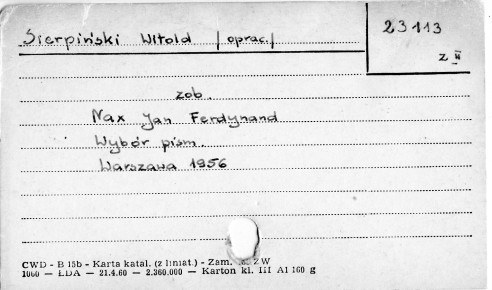 Sierpiński Witold /oprac./
23113
z II
zob.
Nax Jan Ferdynand
Wybór pism.
Warszawa 1956
CWD - B 15b - Karta katal. (z liniat.) - Zam. ZW
1060 — LDA — 21.4.60 — 2.360.000 — Karton kl. III A1 160 g